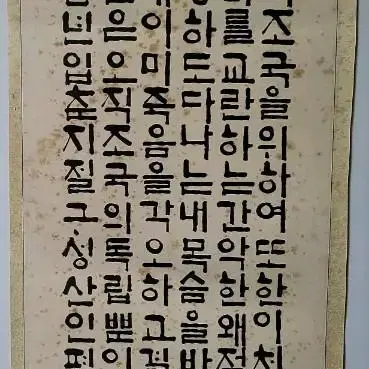 조국을위하여또한이
를교란하는간악한왜적
하도다나는내목숨을바
이미죽음을각오하고결
은오직조국의독립뿐이
년입춘지절그.성산인